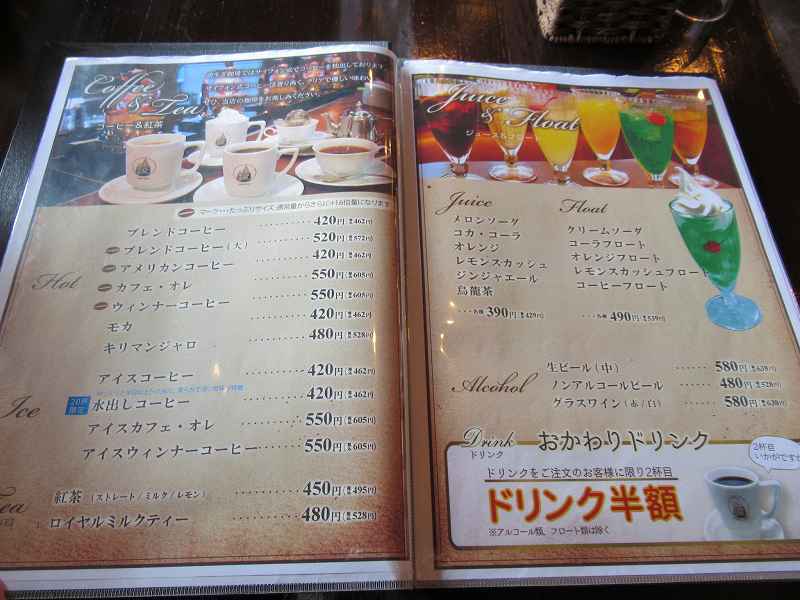 Coffee
& Tea
コーヒー&紅茶
マーク…たっぷりサイズ、通常量からさらに(+1.6倍量)になります
Hot
ブレンドコーヒー 420円(税462円)
ブレンドコーヒー(大) 520円(税572円)
アメリカンコーヒー 420円(税462円)
カフェ・オレ 550円(税605円)
ウィンナーコーヒー 550円(税605円)
モカ 420円(税462円)
キリマンジャロ 480円(税528円)
Ice
アイスコーヒー 420円(税462円)
20杯限定
水出しコーヒー 420円(税462円)
アイスカフェ・オレ 550円(税605円)
アイスウィンナーコーヒー 550円(税605円)
Tea
紅茶(ストレート/ミルク/レモン) 450円(税495円)
ロイヤルミルクティー 480円(税528円)
Juice
& Float
Juice
メロンソーダ
コカ・コーラ
オレンジ
レモンスカッシュ
ジンジャエール
烏龍茶
・・・各種 390円(税429円)
Float
クリームソーダ
コーラフロート
オレンジフロート
レモンスカッシュフロート
コーヒーフロート
・・・各種 490円(税539円)
Alcohol
生ビール(中) 580円(税638円)
ノンアルコールビール 480円(税528円)
グラスワイン(赤/白) 580円(税638円)
Drink
ドリンク
おかわりドリンク
2杯目
いかがですか
ドリンクをご注文のお客様に限り2杯目
ドリンク半額
※アルコール類、フロート類は除く